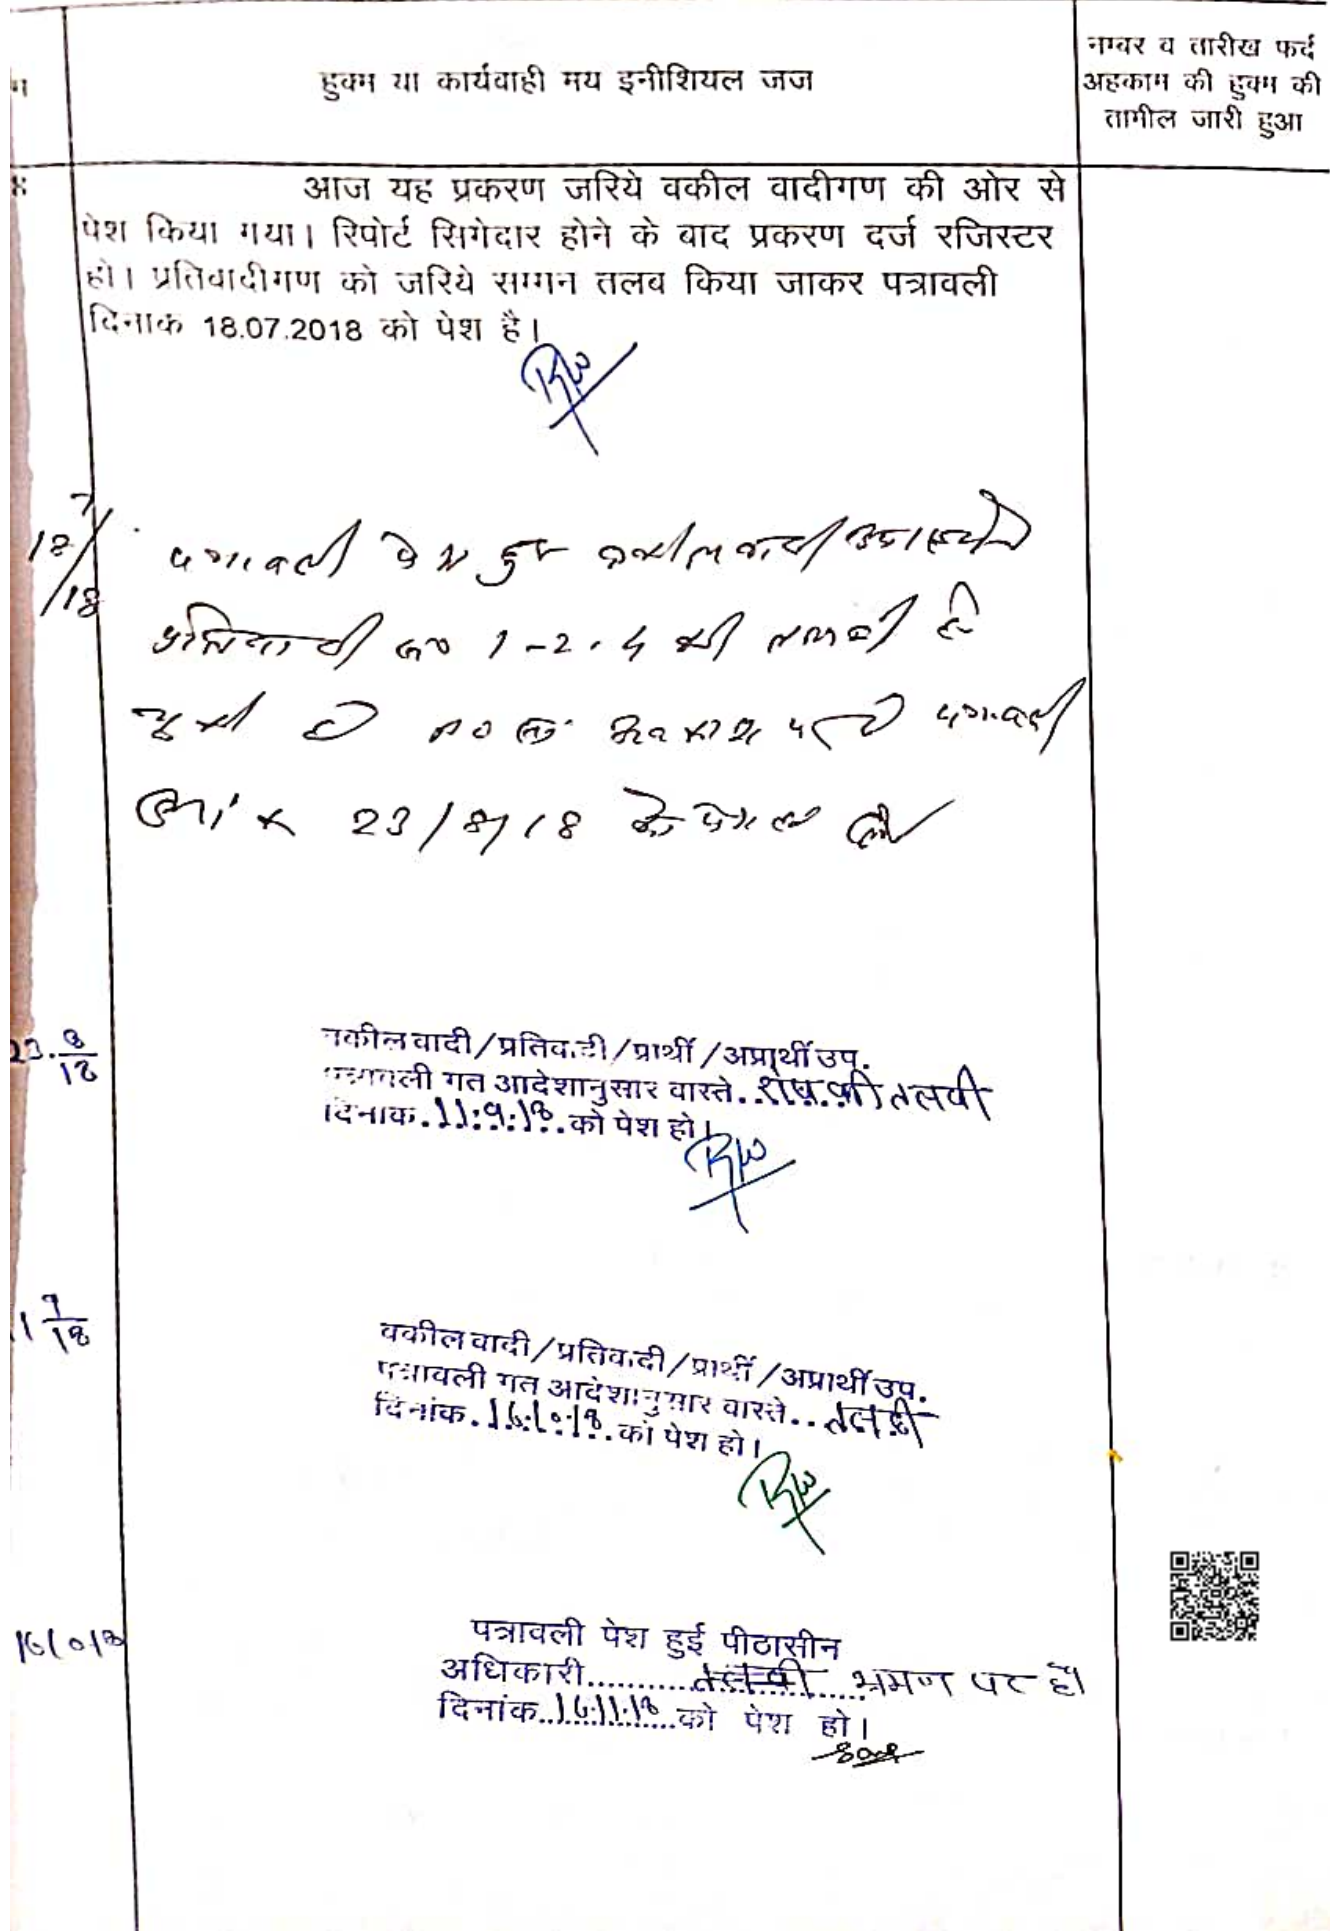 हुक्म या कार्यवाही मय इनीशियल जज
नम्बर व तारीख फर्द
अहकाम की हुक्म की
तामील जारी हुआ
आज यह प्रकरण जरिये वकील वादीगण की ओर से
पेश किया गया। रिपोर्ट सिगेदार होने के बाद प्रकरण दर्ज रजिस्टर
हो। प्रतिवादीगण को जरिये सम्मन तलब किया जाकर पत्रावली
दिनाक 18.07.2018 को पेश है।
18/7/18
पत्रावली पेश हुई वकील वादी
प्रतिवादी 1-2.4 की तलबी हो
चुकी है पत्रावली
23/8/18 को पेश हो
23.8/18
वकील वादी/प्रतिवादी/प्रार्थी/अप्रार्थी उप.
पत्रावली गत आदेशानुसार वास्ते..शेष.की तलवी
दिनाक.11.9.18..को पेश हो।
11 9/18
वकील वादी/प्रतिवादी/प्रार्थी/अप्रार्थी उप.
पत्रावली गत आदेशानुसार वास्ते..तलवी
दिनांक.16.10.18..को पेश हो।
16/10/18
पत्रावली पेश हुई पीठासीन
अधिकारी.......... भ्रमण पर है।
दिनांक..16.11.18......को पेश हो।